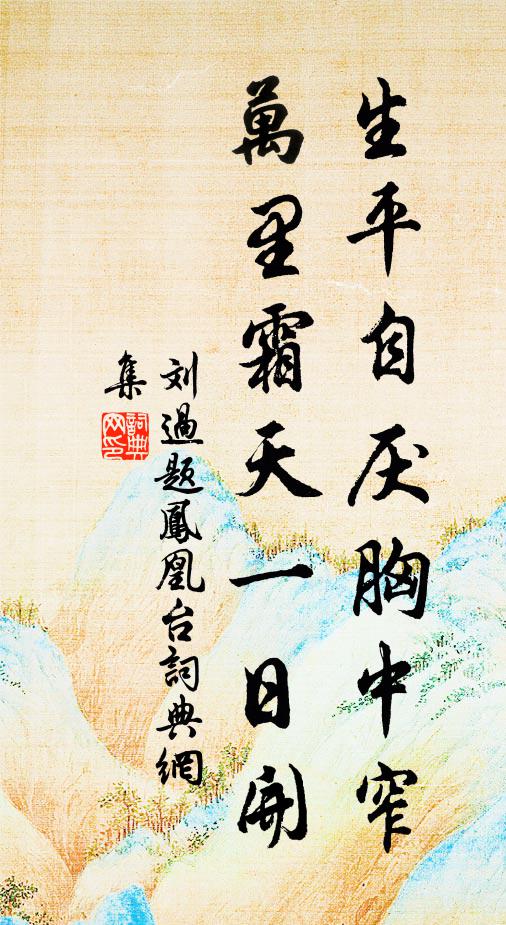 生平自厌胸中窄
萬里霜天一日開
刘過题鳳凰台詞典網
集
詞典
网印